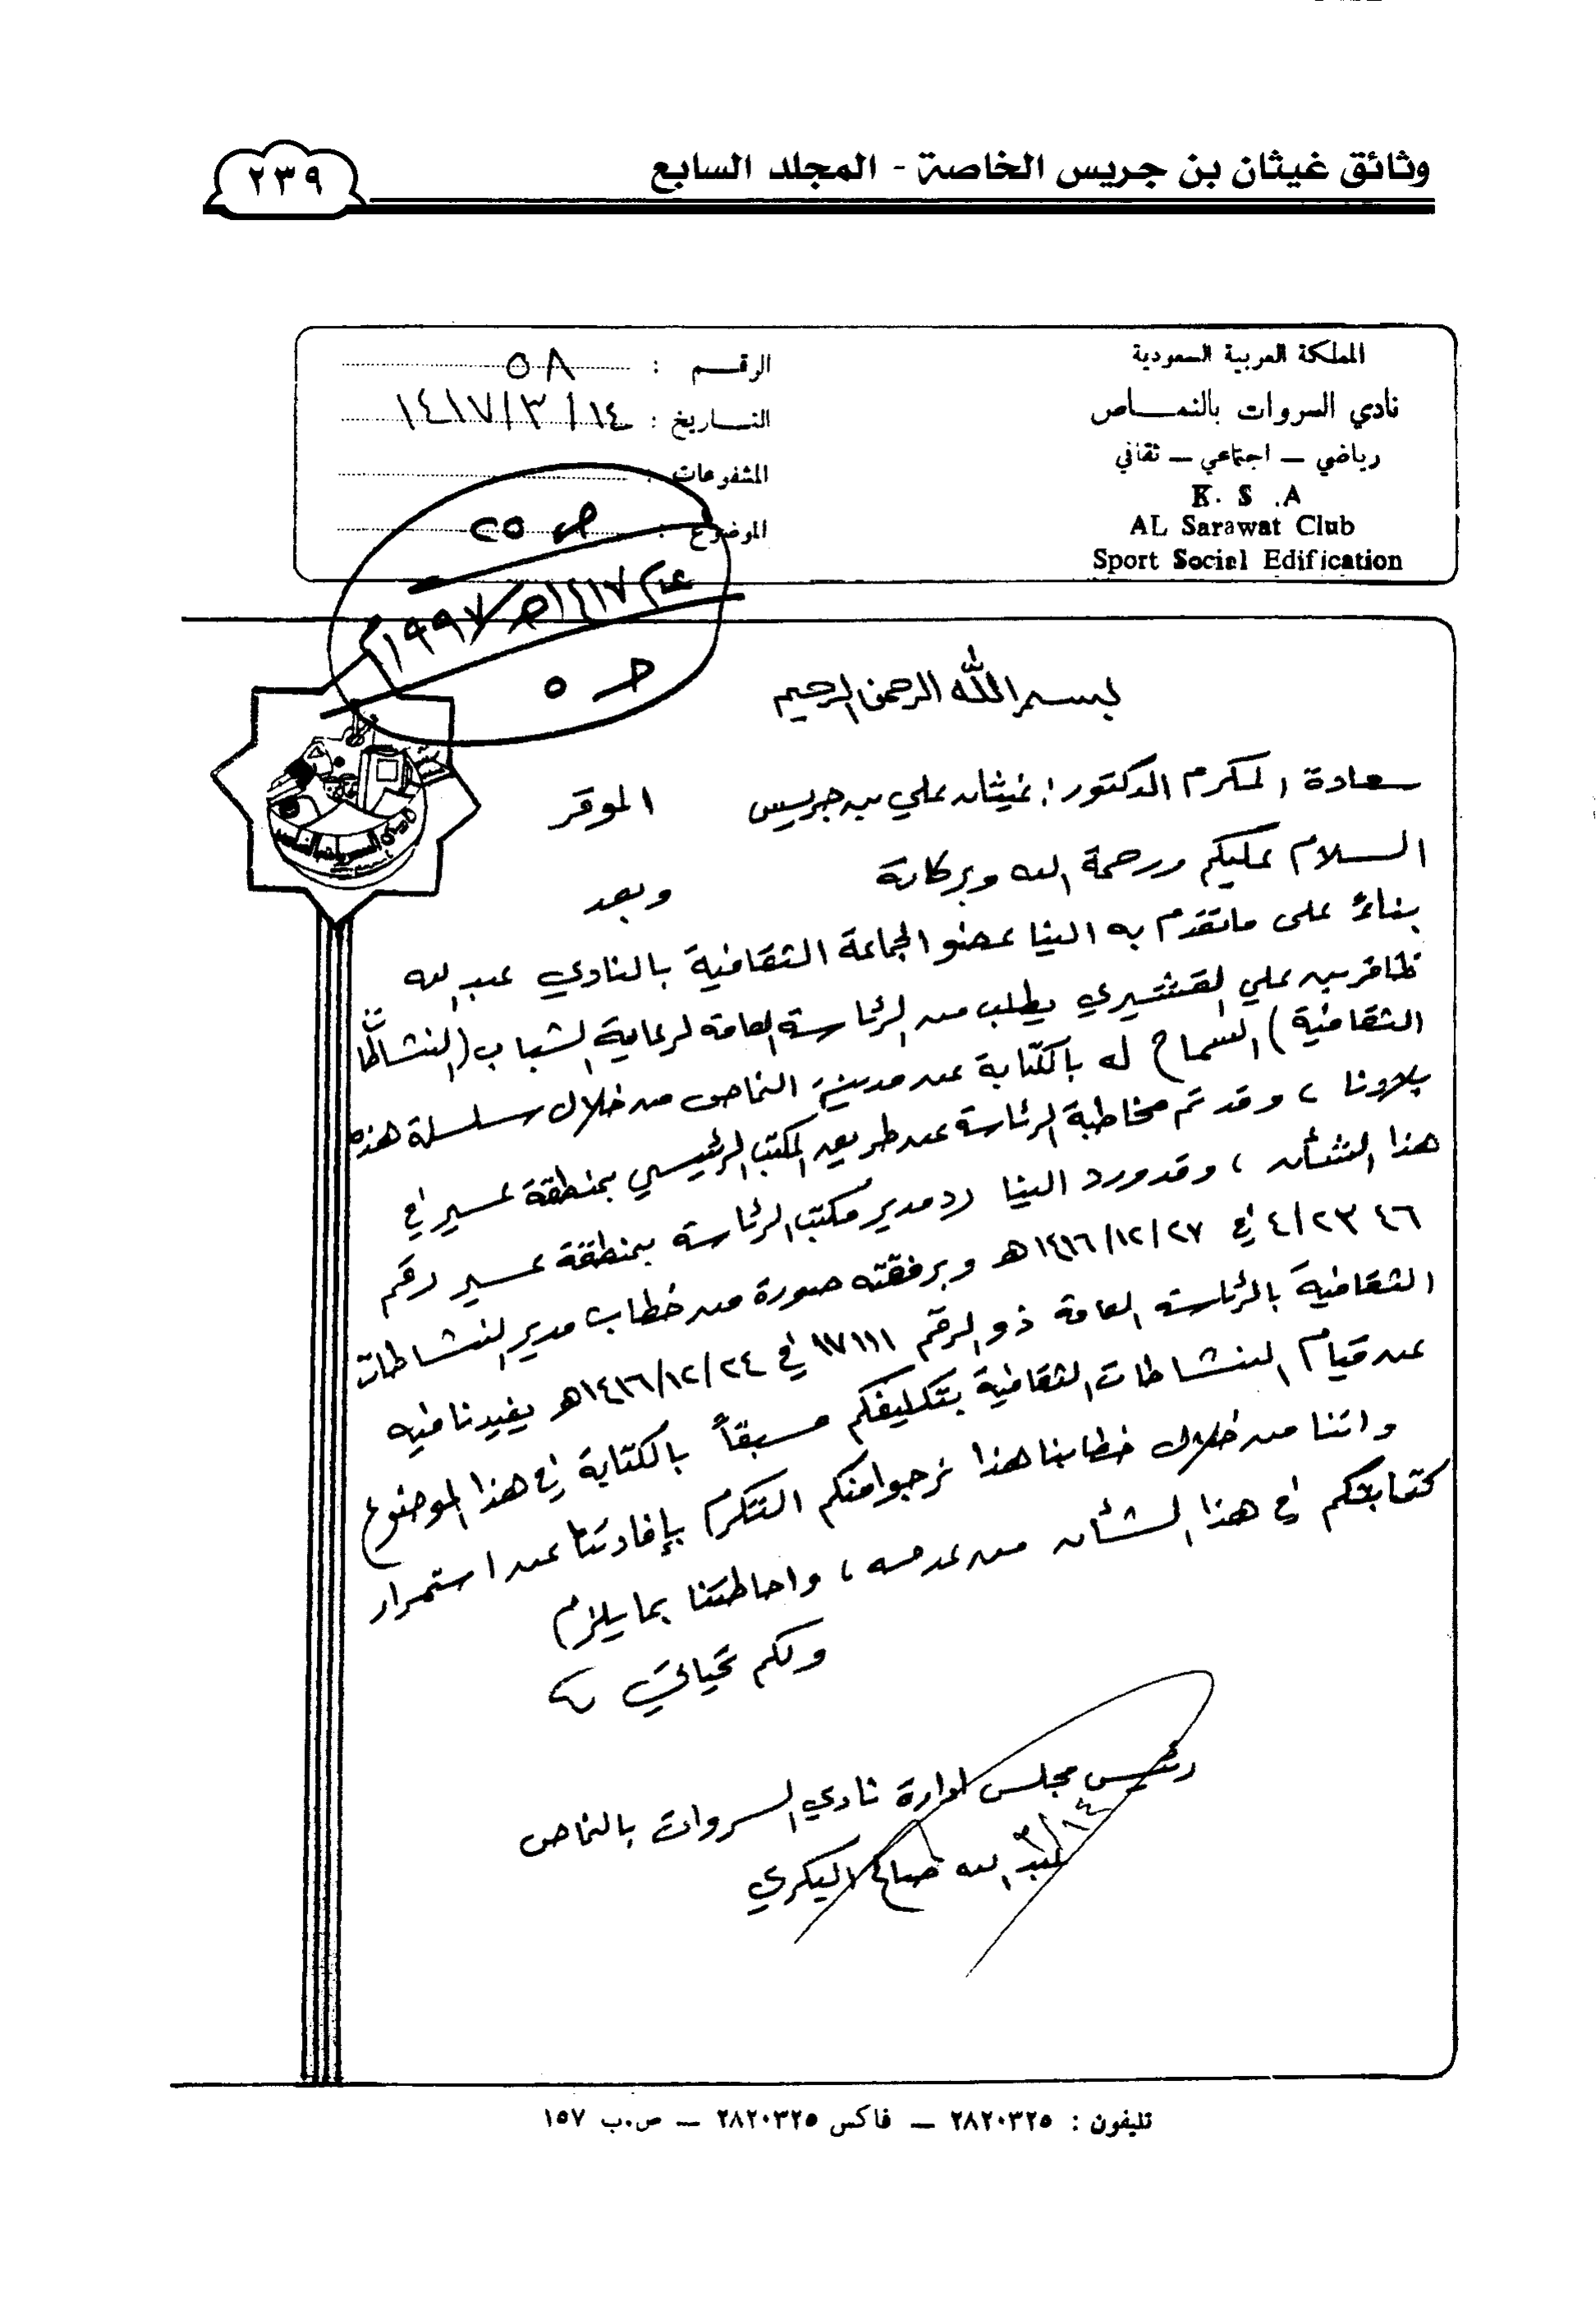 وثائق غيثان بن جريس الخاصة - المجلد السابع
٢٣٩
المملكة العربية السعودية
نادي السروات بالنمــاص
رياضي – اجتماعي – ثقافي
K. S .A
AL Sarawat Club
Sport Social Edification
الرقـــم : ٥٨
التــاريخ : ١٤١٧/٣/١٤
المشفوعات :
الموضوع :
ص ٢٥
عام ١٤١٧هـ/١٩٩٧م
حـ ٥
بسم الله الرحمن الرحيم
سعادة المكرم الدكتور : غيثان علي بن جريس الموقر
السلام عليكم ورحمة الله وبركاته
وبعد
بناءً على ماتقدم به الينا عضو الجماعة الثقافية بالنادي عبدالله
ظافر بن علي القشيري يطلب من الرئاسة العامة لرعاية الشباب (النشاطات
الثقافية) السماح له بالكتابة عن مدينة النماص من خلال سلسلة هذه
بلادنا ، وقد تم مخاطبة الرئاسة عن طريق المكتب الرئيسي بمنطقة عسير في
هذا الشأن ، وقد ورد الينا رد مدير مكتب الرئاسة بمنطقة عسير رقم
٤/٢٣٤٦ في ١٤١٦/١٢/٢٧هـ وبرفقته صورة من خطاب مدير النشاطات
الثقافية بالرئاسة العامة ذو الرقم ١٧١١١ في ١٤١٦/١٢/٢٤هـ يفيدنا فيه
عن قيام النشاطات الثقافية بتكليفكم مسبقاً بالكتابة في هذا الموضوع
واننا من خلال خطابنا هذا نرجوا منكم التكرم بإفادتنا عن استمرار
كتابتكم في هذا الشأن من عدمه ، واحاطتنا بما يلزم
ولكم تحياتي
رئيس مجلس ادارة نادي السروات بالنماص
٣/١٤
عبدالله صالح البكري
تليفون : ٢٨٢٠٣٢٥ – فاكس ٢٨٢٠٣٢٥ – ص.ب ١٥٧